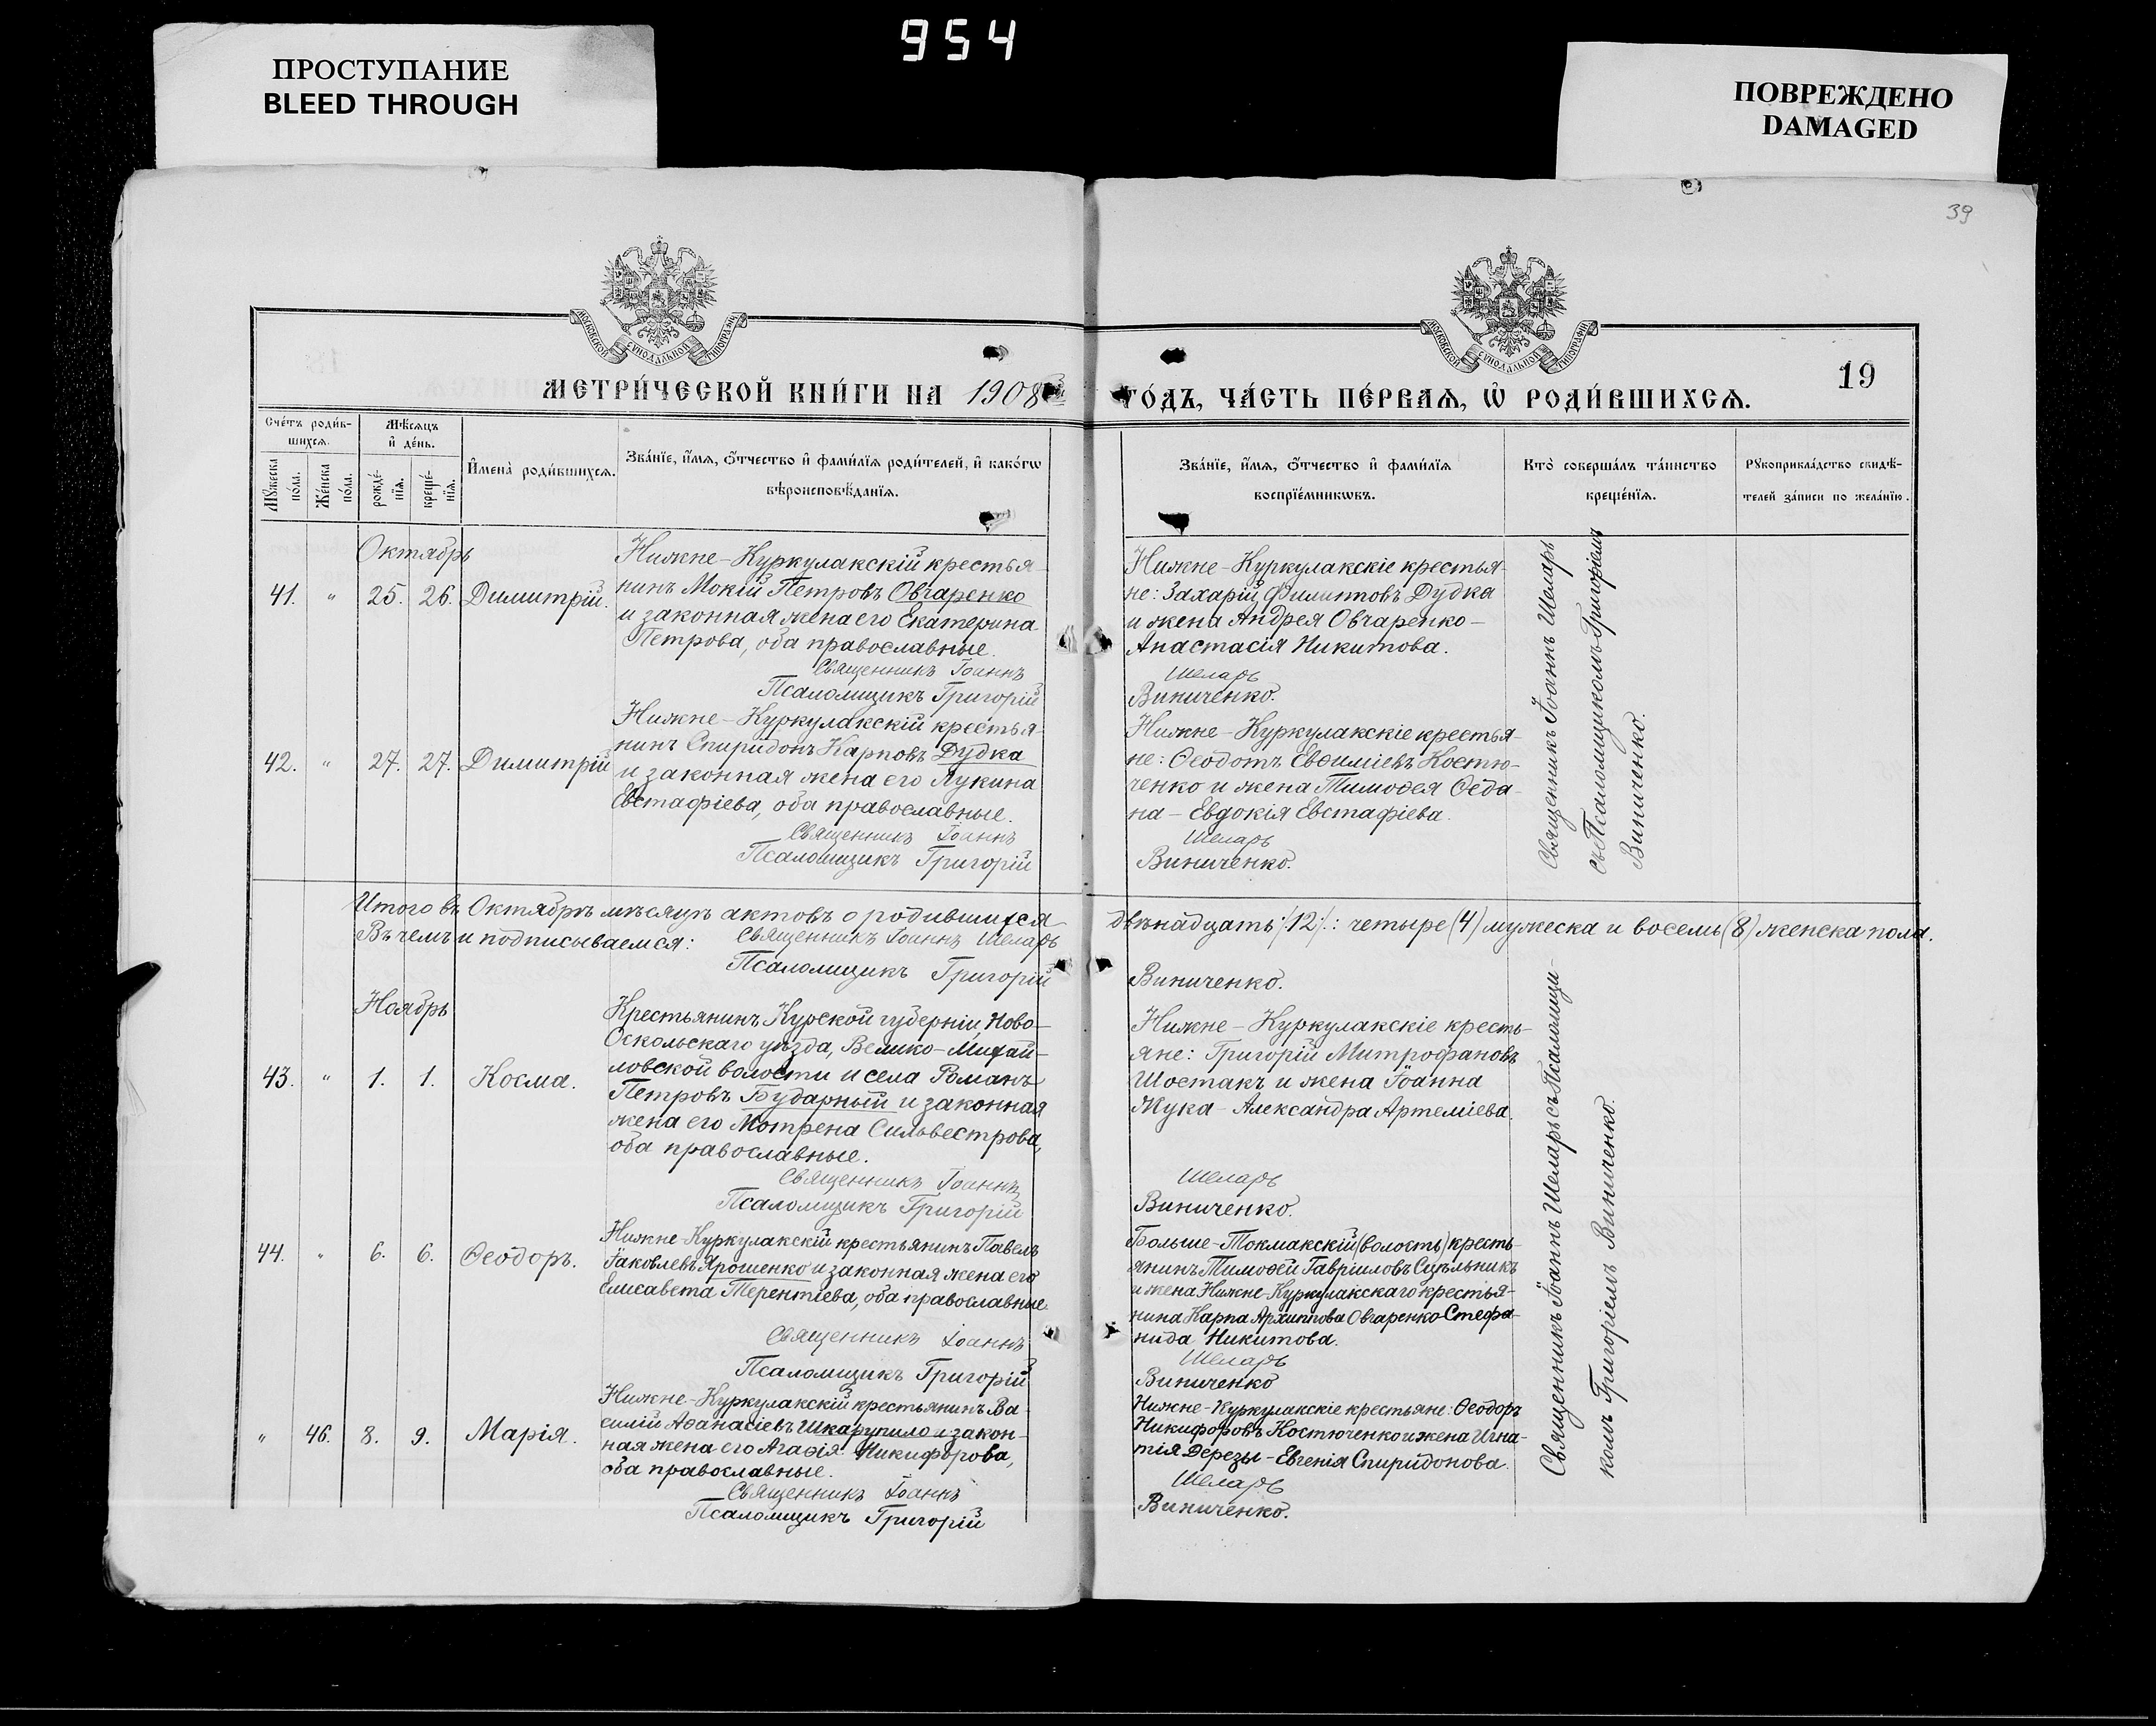 954
ПРОСТУПАНИЕ
BLEED THROUGH
ПОВРЕЖДЕНО
DAMAGED
39
МОСКОВСКОЙ СѴНОДАЛЬНОЙ ТИПОГРАФІИ
МОСКОВСКОЙ СѴНОДАЛЬНОЙ ТИПОГРАФІИ
19
МЕТРИ́ЧЕСКОЙ КНИ́ГИ НА 1908 ГО́ДЪ, ЧА́СТЬ ПЕ́РВАѦ, Ѡ҆ РОДИ́ВШИХСѦ.
Сче́тъ роди́в-
шихсѧ.
Мꙋ́жеска
по́ла.
Же́нска
по́ла.
Мѣ́сѧцъ
и҆ де́нь.
рожде́-
нїѧ.
креще́-
нїѧ.
И҆мена̀ роди́вшихсѧ.
Зва́нїе, и҆́мѧ, ѻ҆́тчество и҆ фами́лїѧ роди́телей, и҆ како́гѡ
вѣроисповѣ́данїѧ.
Зва́нїе, и҆́мѧ, ѻ҆́тчество и҆ фами́лїѧ
воспрїе́мникѡвъ.
Кто̀ соверша́лъ та́инство
креще́нїѧ.
Рꙋкоприкла́дство свидѣ́-
телей за́писи по жела́нїю.
Октябрь
41. " 25. 26. Димитрій.
Нижне-Куркулакскій крестья-
нинъ Мокій Петровъ Овчаренко
и законная жена его Екатерина
Петрова, оба православные.
Священникъ Іоаннъ
Псаломщикъ Григорій
Нижне-Куркулакскіе крестья-
не: Захарій Филиповъ Дудка
и жена Андрея Овчаренко-
Анастасія Никитова.
Шеларь
Виниченко.
Священникъ Іоаннъ Шеларь
съ Псаломщикомъ Григоріемъ
Виниченко.
42. " 27. 27. Димитрій
Нижне-Куркулакскій крестья-
нинъ Спиридонъ Карповъ Дудка
и законная жена его Лукина
Евстафіева, оба православные.
Священникъ Іоаннъ
Псаломщикъ Григорій
Нижне-Куркулакскіе крестья-
не: Ѳеодотъ Евѳиміевъ Костю-
ченко и жена Тимоѳея Ѳеда-
на - Евдокія Евстафіева.
Шеларь
Виниченко.
Итого въ Октябрѣ мѣсяцѣ актовъ о родившихся двѣнадцать:/12/: четыре (4) мужеска и восемь (8) женска пола.
Въ чемъ и подписываемся: Священникъ Іоаннъ Шеларь
Псаломщикъ Григорій Виниченко.
Ноябрь
43. " 1. 1. Косма.
Крестьянинъ Курской губерніи, Ново-
Оскольскаго уѣзда, Велико-Михай-
ловской волости и села Романъ
Петровъ Бударный и законная
жена его Мотрена Сильвестрова,
оба православные.
Священникъ Іоаннъ
Псаломщикъ Григорій
Нижне-Куркулакскіе кресть-
яне: Григорій Митрофановъ
Шостакъ и жена Іоанна
Жука - Александра Артеміева.
Шеларь
Виниченко.
Священникъ Іоаннъ Шеларь съ Псаломщи-
комъ Григоріемъ Виниченко.
44. " 6. 6. Ѳеодоръ.
Нижне-Куркулакскій крестьянинъ Павелъ
Іаковлевъ Ярошенко и законная жена его
Елисавета Терентіева, оба православные.
Священникъ Іоаннъ
Псаломщикъ Григорій
Больше-Токмакскій (волость) кресть-
янинъ Тимоѳей Гавріиловъ Сцѣльникъ
и жена Нижне-Куркулакскаго крестья-
нина Карпа Архиппова Овчаренко-Стефа-
нида Никитова.
Шеларь
Виниченко
" 46. 8. 9. Марія.
Нижне-Куркулакскій крестьянинъ Ва-
силій Аѳанасіевъ Шкарупило и закон-
ная жена его Агаѳія Никифорова,
оба православные.
Священникъ Іоаннъ
Псаломщикъ Григорій
Нижне-Куркулакскіе крестьяне: Ѳеодоръ
Никифоровъ Костюченко и жена Игна-
тія Дерезы - Евгенія Спиридонова.
Шеларь
Виниченко.